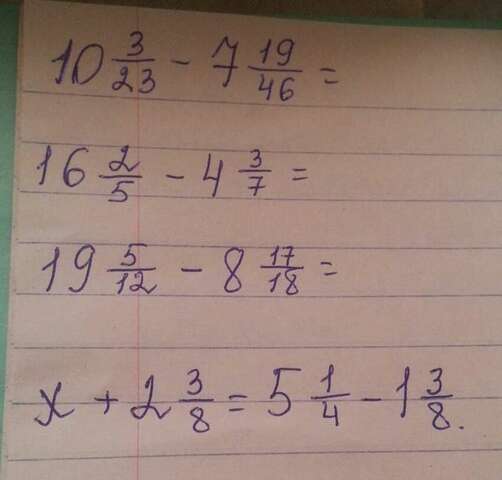 10 3/23 - 7 19/46 =
16 2/5 - 4 3/7 =
19 5/12 - 8 17/18 =
x + 2 3/8 = 5 1/4 - 1 3/8.